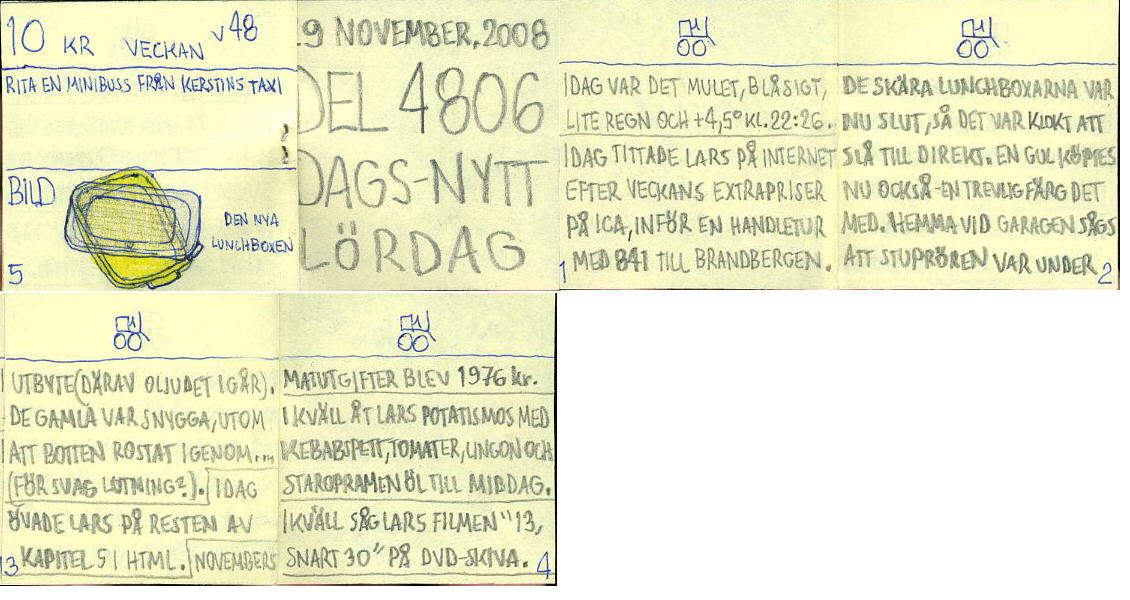 10 KR VECKAN V48
RITA EN MINIBUSS FRÅN KERSTINS TAXI
BILD
DEN NYA
LUNCHBOXEN
5
29 NOVEMBER, 2008
DEL 4806
DAGS-NYTT
LÖRDAG
IDAG VAR DET MULET, BLÅSIGT,
LITE REGN OCH +4,5° KL. 22:26.
IDAG TITTADE LARS PÅ INTERNET
EFTER VECKANS EXTRAPRISER
PÅ ICA, INFÖR EN HANDLETUR
1 MED 841 TILL BRANDBERGEN.
DE SKÄRA LUNCHBOXARNA VAR
NU SLUT, SÅ DET VAR KLOKT ATT
SLÅ TILL DIREKT. EN GUL KÖPTES
NU OCKSÅ - EN TREVLIG FÄRG DET
MED. HEMMA VID GARAGEN SÅGS
ATT STUPRÖREN VAR UNDER 2
UTBYTE (DÄRAV OLJUDET IGÅR).
DE GAMLA VAR SNYGGA, UTOM
ATT BOTTEN ROSTAT IGENOM...
(FÖR SVAG LUTNING?). IDAG
ÖVADE LARS PÅ RESTEN AV
3 KAPITEL 5 I HTML. NOVEMBERS
MATUTGIFTER BLEV 1976 kr.
IKVÄLL ÅT LARS POTATISMOS MED
KEBABSPETT, TOMATER, LINGON OCH
STAROPRAMEN ÖL TILL MIDDAG.
IKVÄLL SÅG LARS FILMEN "13,
SNART 30" PÅ DVD-SKIVA. 4